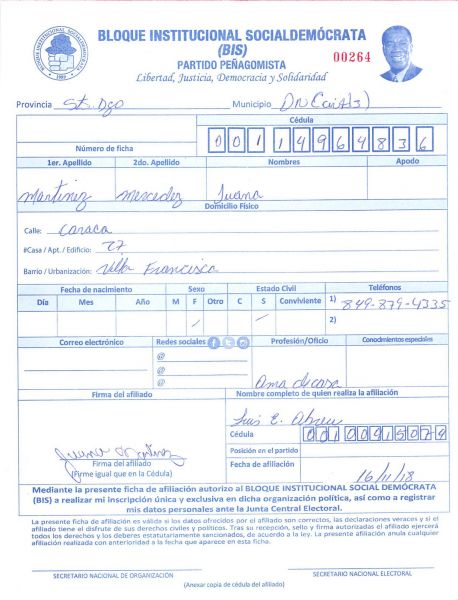 BLOQUE INSTITUCIONAL SOCIALDEMÓCRATA
(BIS)
PARTIDO PEÑAGOMISTA
00264
Libertad, Justicia, Democracia y Solidaridad
BLOQUE INSTITUCIONAL SOCIALDEMOCRATA
1989
Provincia Sto. Dgo Municipio DN
Cédula
Número de ficha 001 1496483 6
1er. Apellido 2do. Apellido Nombres Apodo
Martinez Mercedez Juana
Domicilio Físico
Calle: Caraca
#Casa / Apt. / Edificio: 27
Barrio / Urbanización: Villa Francisca
Fecha de nacimiento Sexo Estado Civil Teléfonos
Día Mes Año M F Otro C S Conviviente 1) 849-879-4335
/ / 2)
Correo electrónico Redes sociales Profesión/Oficio Conocimientos especiales
@
@
@
Ama de casa
Firma del afiliado Nombre completo de quien realiza la afiliación
Luis E. Abreu
Cédula 001 0041507 4
Juana Martinez
Firma del afiliado
(Firme igual que en la Cédula)
Posición en el partido
Fecha de afiliación 16/11/18
Mediante la presente ficha de afiliación autorizo al BLOQUE INSTITUCIONAL SOCIAL DEMÓCRATA
(BIS) a realizar mi inscripción única y exclusiva en dicha organización política, así como a registrar
mis datos personales ante la Junta Central Electoral.
La presente ficha de afiliación es válida si los datos ofrecidos por el afiliado son correctos, las declaraciones veraces y si el
afiliado tiene el disfrute de sus derechos civiles y políticos. Tras su recepción, sello y firma autorizadas el afiliado ejercerá
todos los derechos y los deberes estatutariamente sancionados, de acuerdo a la ley. La presente afiliación anula cualquier
afiliación realizada con anterioridad a la fecha que aparece en esta ficha.
SECRETARIO NACIONAL DE ORGANIZACIÓN SECRETARIO NACIONAL ELECTORAL
(Anexar copia de cédula del afiliado)